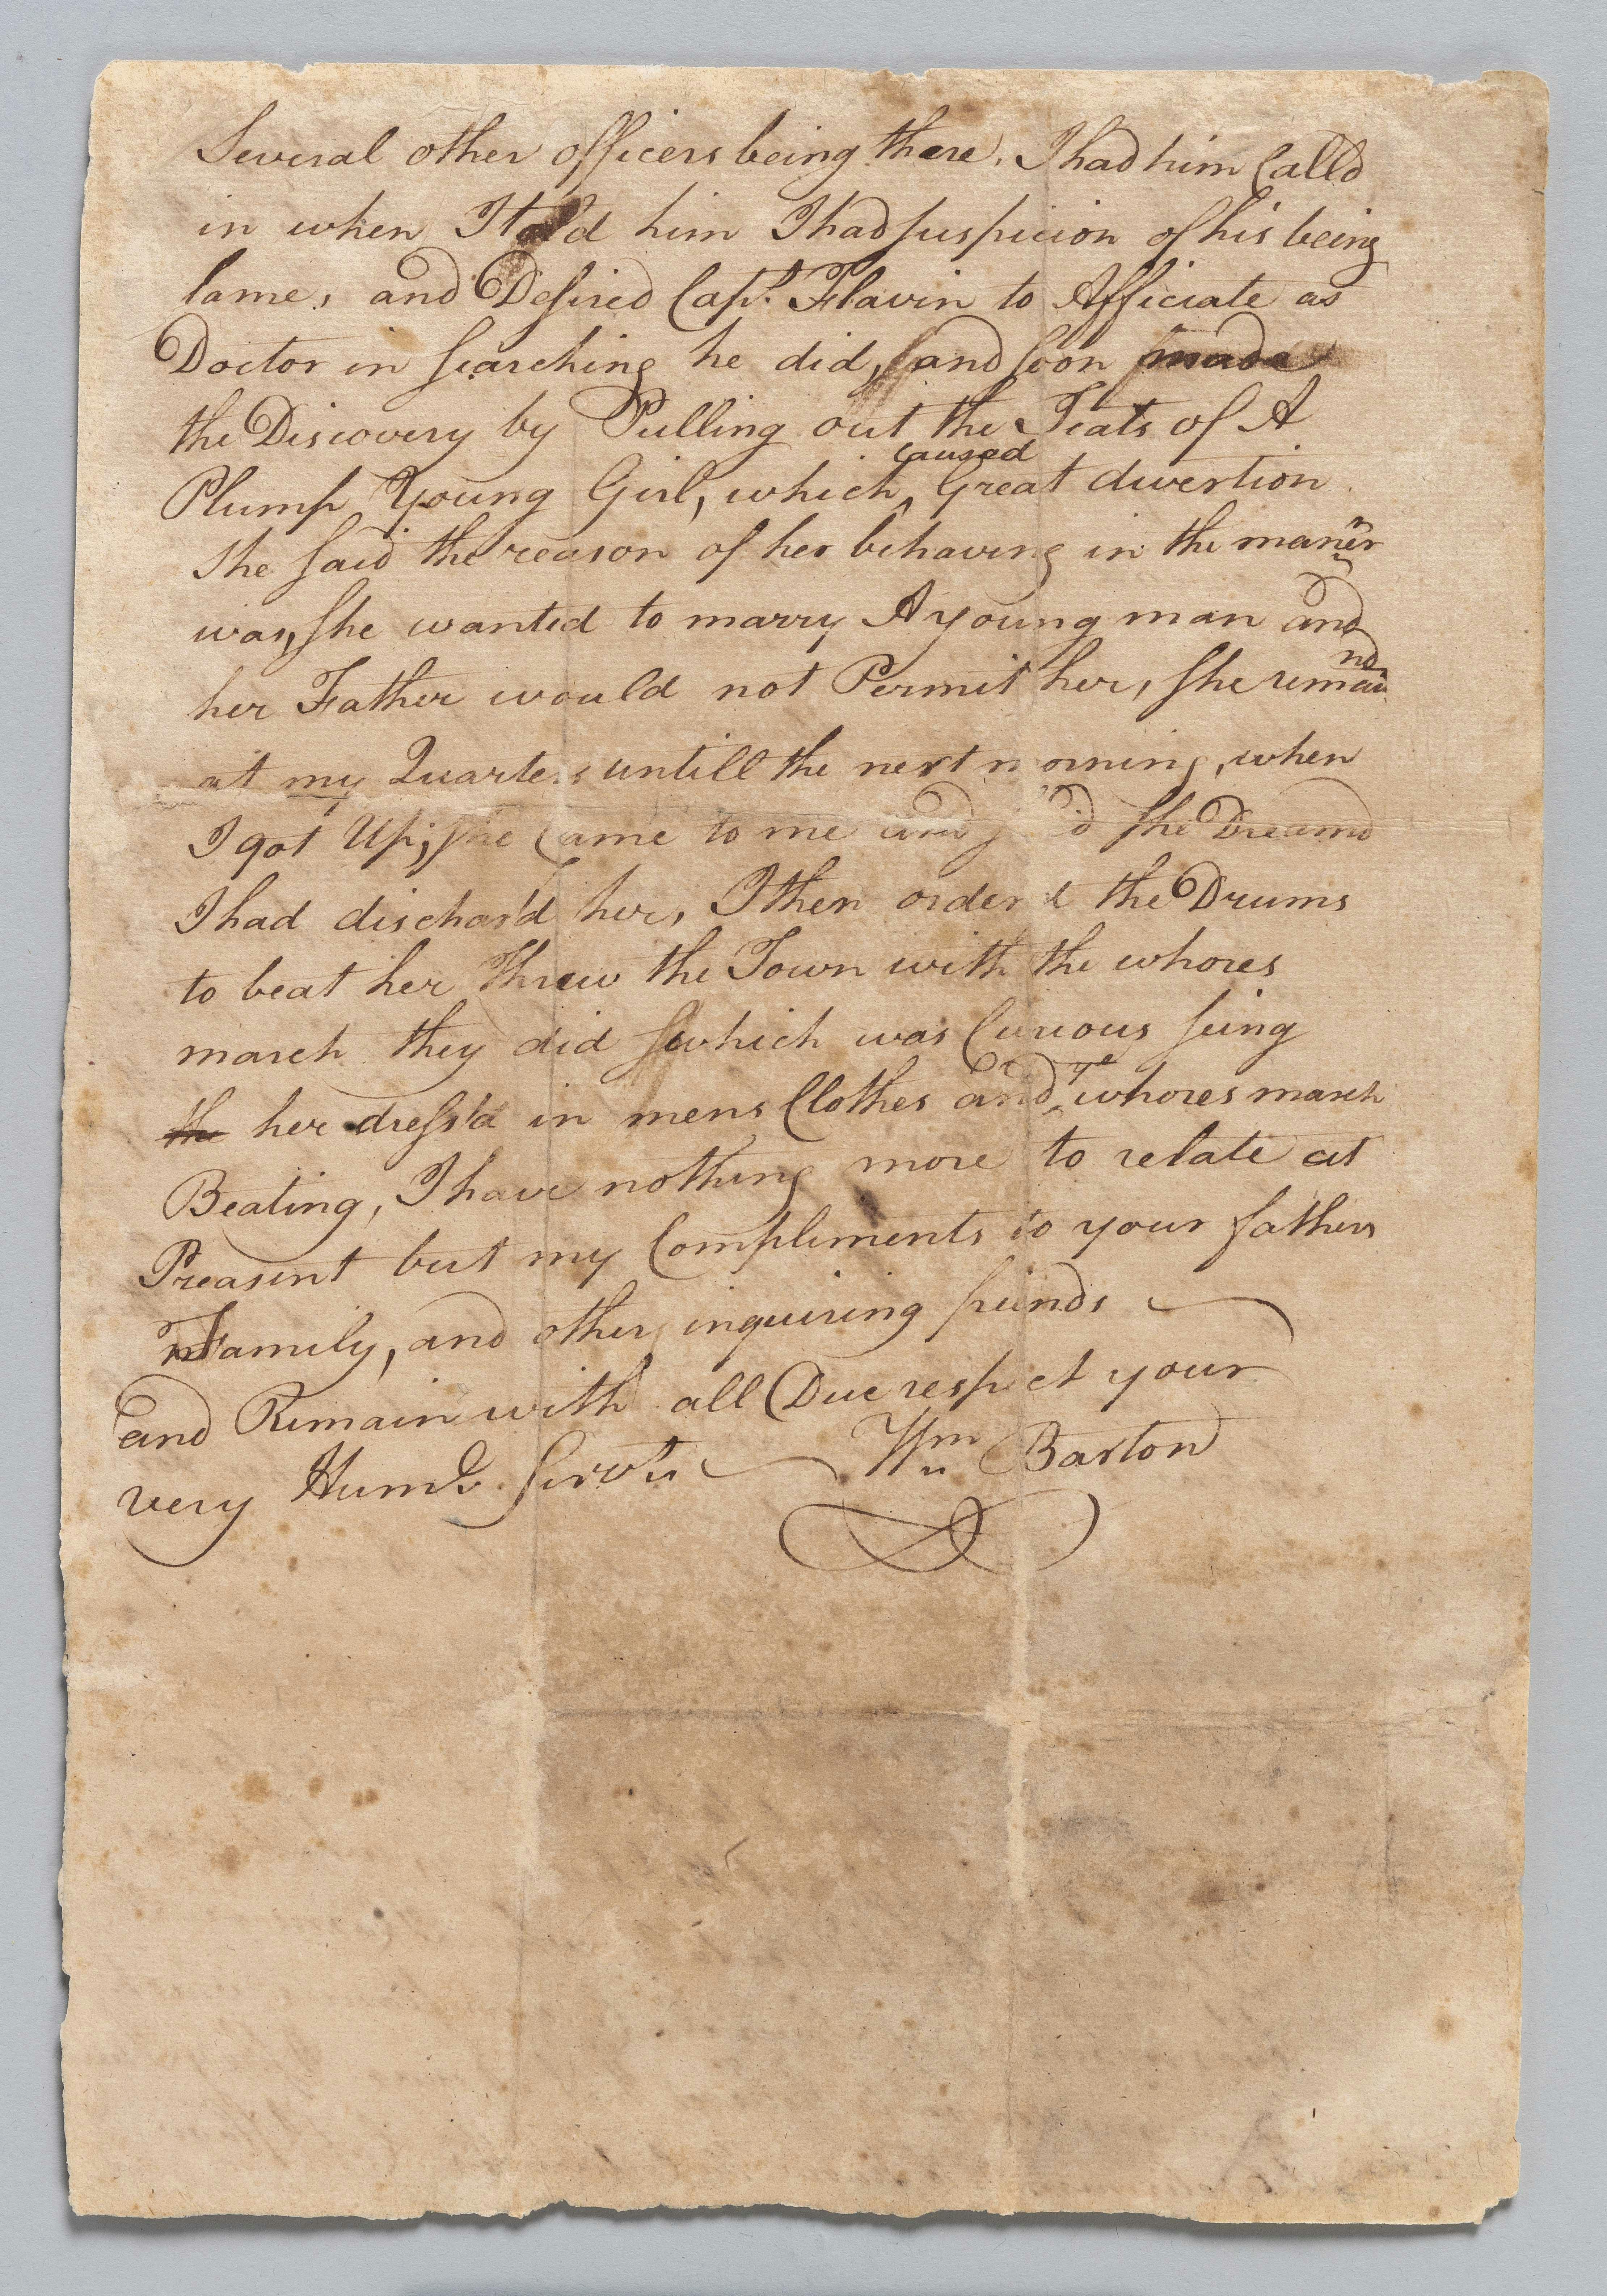 Several other officers being there, I had him Calld
in when I told him I had suspicion of his being
lame, and Desired Capt. Flavin to Afficiate as
Doctor in searching he did, and soon made
the Discovery by Pulling out the Teats of A
Plump Young Girl, which caused Great divertion.
She said the reason of her behaving in the maner
was, she wanted to marry A young man and
her Father would not Permit her, she remaind
at my Quarters untill the next morning, when
I got Up; she Came to me and she Dreamd
I had dischard her, I then order'd the Drums
to beat her Threw the Town with the whores
march they did which was Curious seing
the her dress'd in mens Clothes and Te whores march
Beating, I have nothing more to relate at
Preasent but my Compliments to your fathers
Family, and other inquiring friends
and Remain with all Due respect your
very Humle Servt Wm Barton